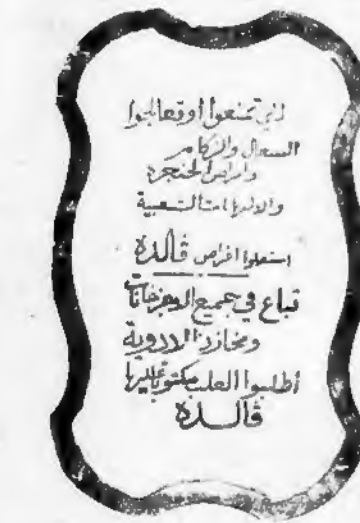 لكي تمنعوا او تعالجوا
السعال والزكام
وامراض الحنجرة
والالتهابات الشعبية
استعملوا اقراص ڤالدة
تباع في جميع الاجزخانات
ومخازن الادوية
أطلبوا العلب مكتوب عليها
ڤالدة